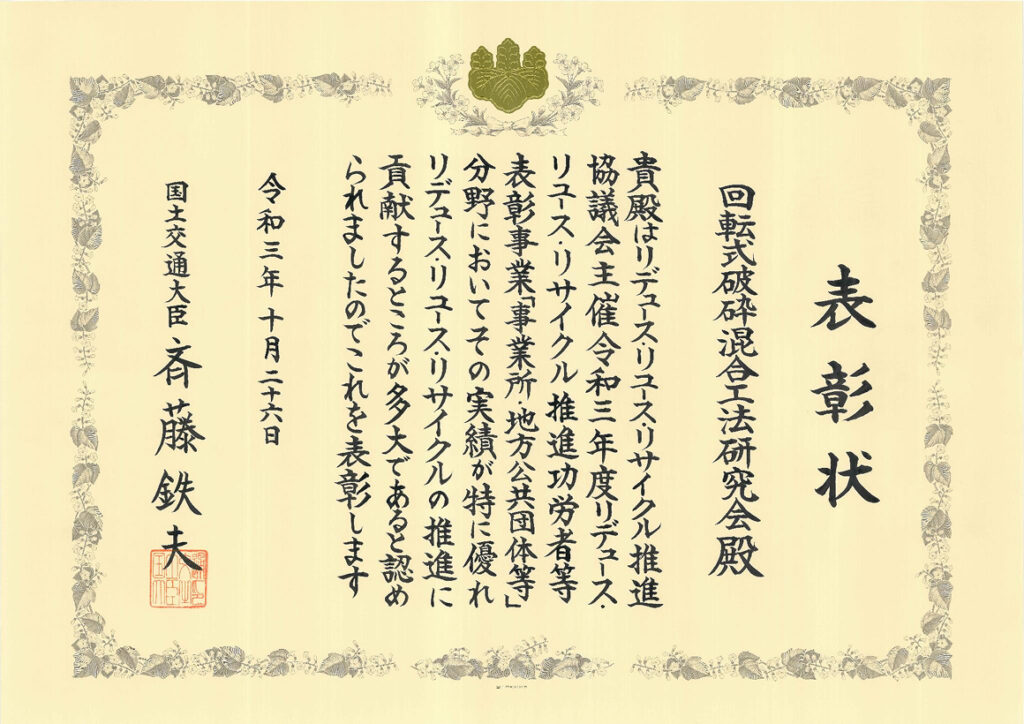 表彰状
回転式破砕混合工法研究会殿
貴殿はリデュース・リユース・リサイクル推進
協議会主催令和三年度リデュース・
リユース・リサイクル推進功労者等
表彰事業「事業所・地方公共団体等」
分野においてその実績が特に優れ
リデュース・リユース・リサイクルの推進に
貢献するところが多大であると認め
られましたのでこれを表彰します
令和三年十月二十六日
国土交通大臣 斉藤鉄夫